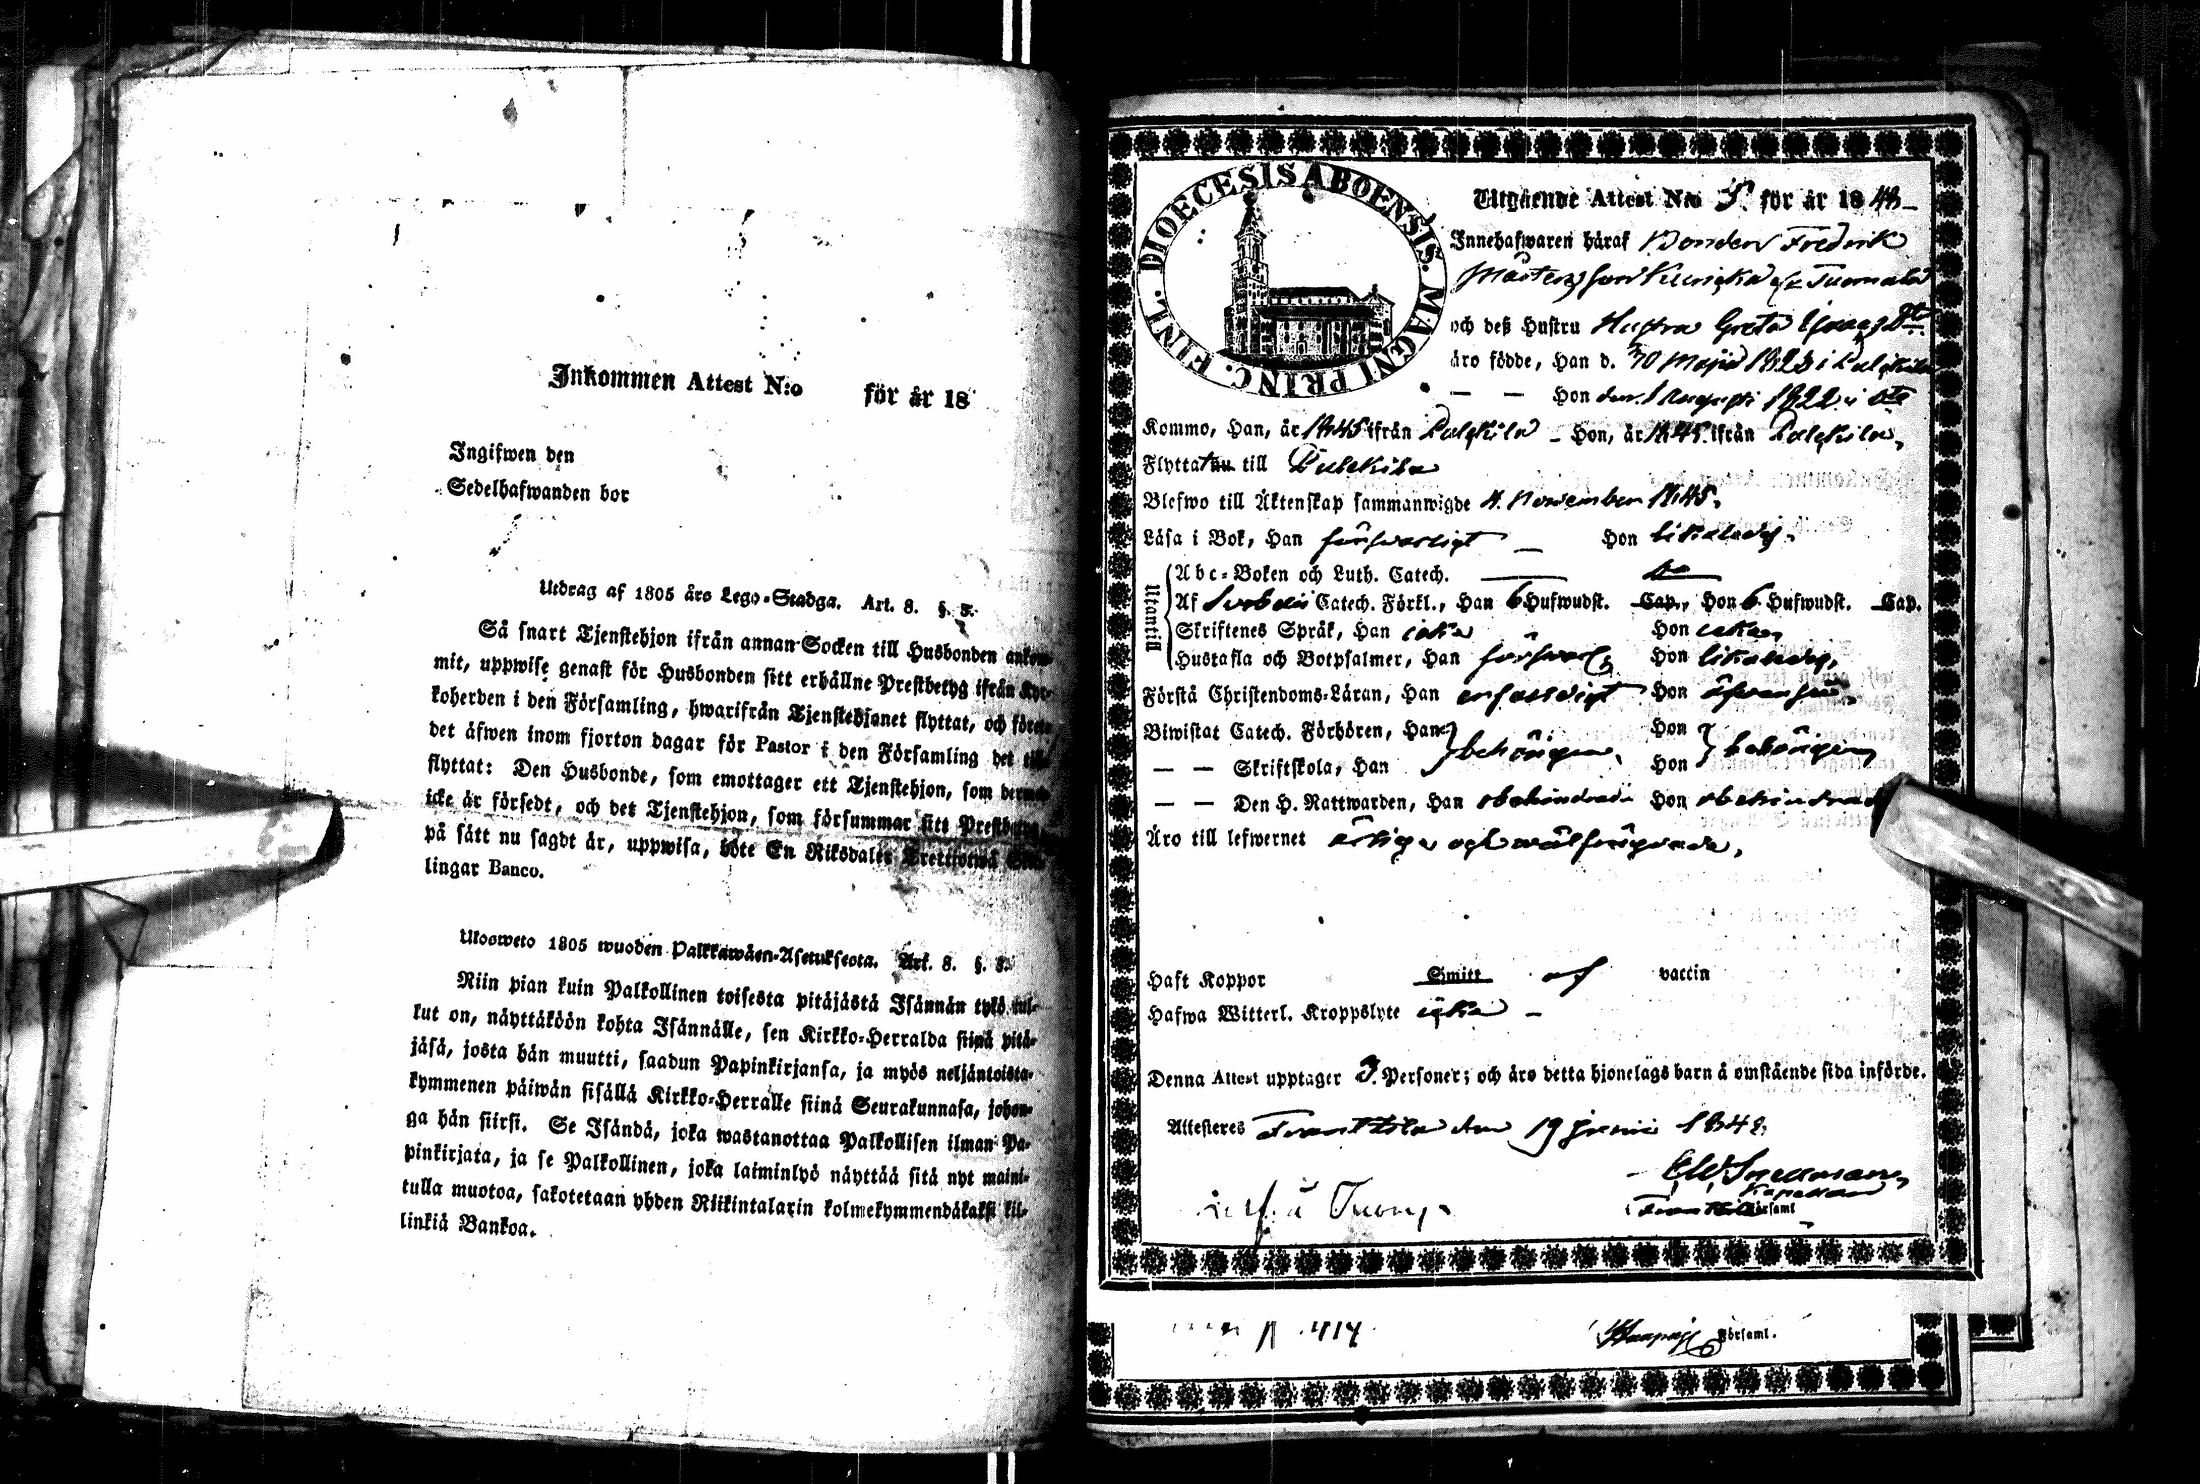 Inkommen Attest N:o för år 18
Ingifwen den
Sedelhafwanden bor
Utdrag af 1805 års Lego-Stadga. Art. 8. §. 8.
Så snart Tjenstehjon ifrån annan Socken till Husbonden ankom-
mit, uppwise genast för Husbonden sitt erhållne Prestbetyg ifrån Kyr-
koherden i den Församling, hwarifrån Tjenstehjonet flyttat, och förete
det äfwen inom fjorton dagar för Pastor i den Församling det till-
flyttat: Den Husbonde, som emottager ett Tjenstehjon, som dermed
icke är försedt, och det Tjenstehjon, som försummar sitt Prestbetyg,
på sätt nu sagdt är, uppwisa, böte En Riksdaler Trettiotwå Skil-
lingar Banco.
Ulosweto 1805 wuoden Palkkawäen-Asetuksesta. Art. 8. §. 8.
Niin pian kuin Palkollinen toisesta pitäjästä Isännän tykö tul-
kut on, näyttäköön kohta Isännälle, sen Kirkko-Herralda siinä pitä-
jäsä, josta hän muutti, saadun Papinkirjansa, ja myös neljäntoista-
kymmenen päiwän sisällä Kirkko-Herralle siinä Seurakunnasa, johon-
ga hän siirsi. Se Isändä, joka wastanottaa Palkollisen ilman Pa-
pinkirjata, ja se Palkollinen, joka laiminlyö näyttää sitä nyt maini-
tulla muotoa, sakotetaan yhden Riikintalarin kolmekymmendäkaksi kil-
linkiä Bankoa.
DIOECESIS ABOENSIS. MAGNI PRINC. FINL.
Utgående Attest N:o 5. för år 1848
Innehafwaren häraf Bonden Fredrik
Mårtensson
och deß Hustru Hustru Greta
äro födde, Han d. Maji 1823 i Pulckila
— — Hon den 1 Augusti 1822 i
Kommo, Han, år 1845 ifrån Pulckila – Hon, år 1845 ifrån Pulckila,
Flytta till Pulckila
Blefwo till Äktenskap sammanwigde 4. November 1845.
Läsa i Bok, Han förswarligt – Hon likaledes.
Utantill
Abc-Boken och Luth. Catech.
Af Svebelii Catech. Förkl., Han 6 Hufwudst. Cap., Hon 6 Hufwudst. Cap.
Skriftenes Språk, Han icke Hon icke,
Hustafla och Botpsalmer, Han förswarl. Hon likaledes,
Förstå Christendoms-Läran, Han enfaldigt Hon äfwenså.
Biwistat Catech. Förhören, Han Hon
behörigen, behörigen
— — Skriftskola, Han Hon
— — Den H. Nattwarden, Han obehindrad Hon obehindrad
Äro till lefwernet ärliga och wälfrägdade,
Haft Koppor Smitt af vaccin
Hafwa Witterl. Kroppslyte icke –
Denna Attest upptager 3. Personer; och äro detta hjonelags barn å omstående sida införde.
Attesteres Frantzila den 19 Junii 1848.
EW Snellman,
Kapellan
Frantzila Församl
Församl.